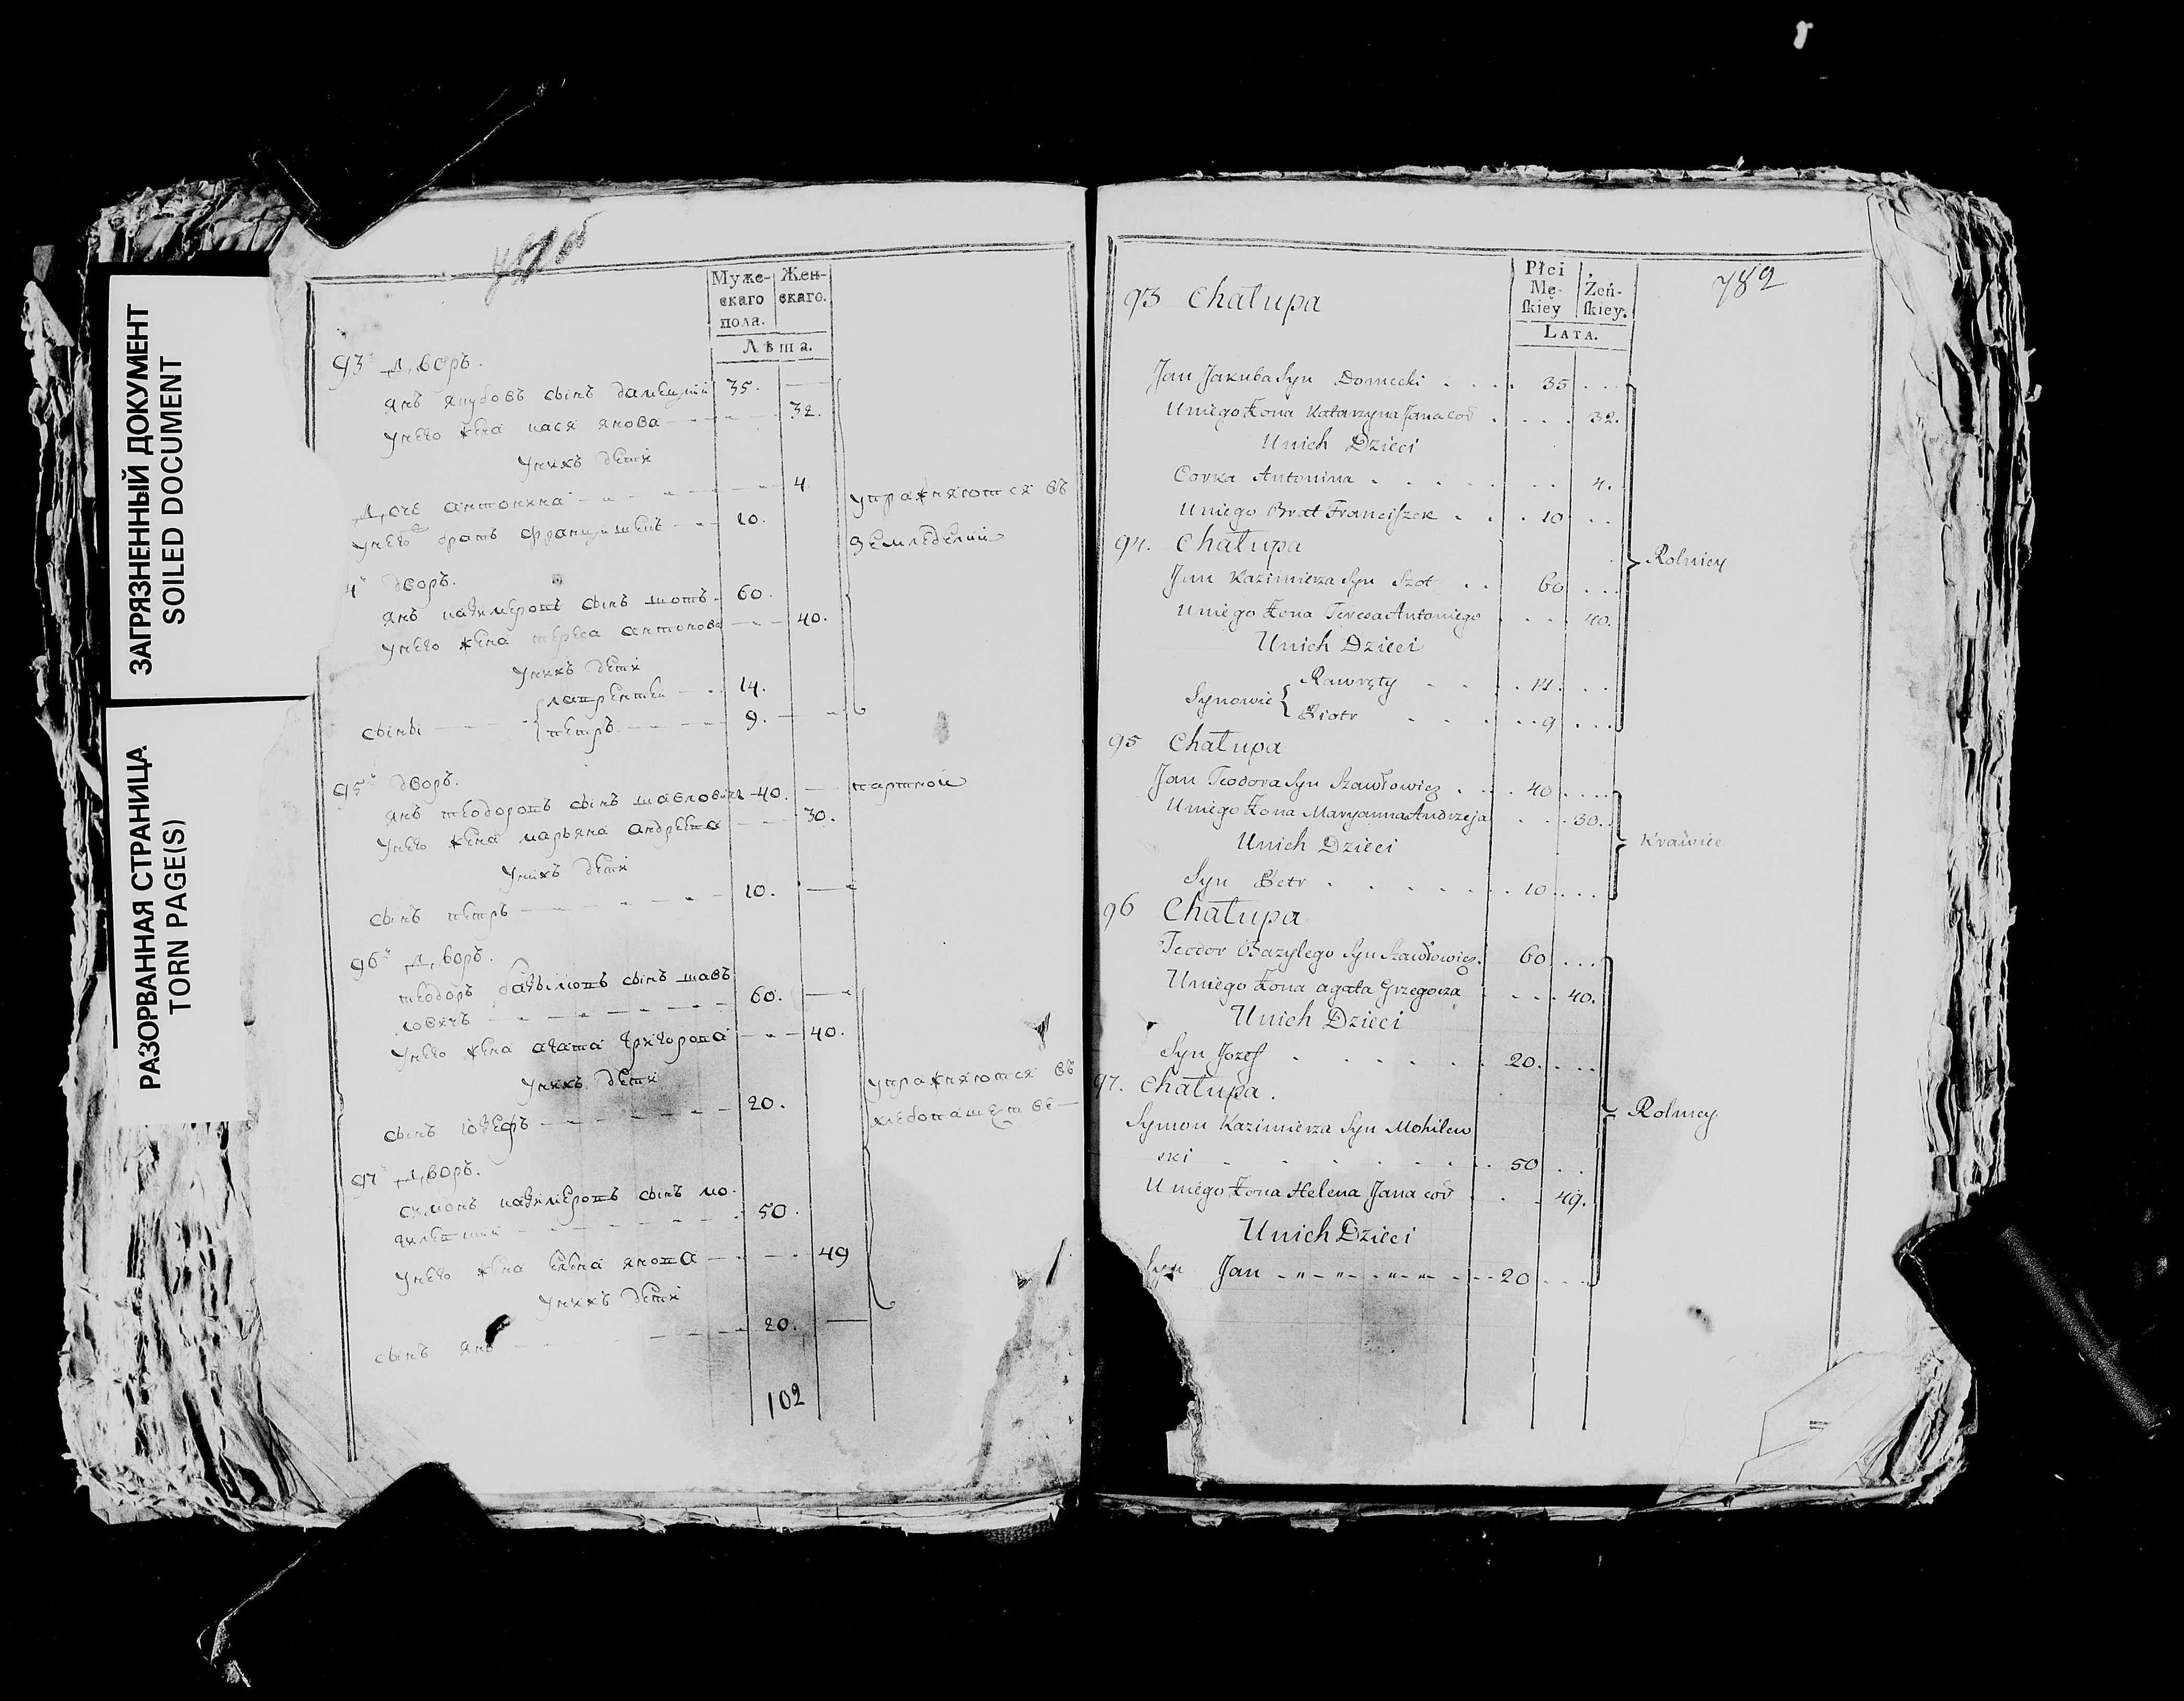 ЗАГРЯЗНЕННЫЙ ДОКУМЕНТ
SOILED DOCUMENT
РАЗОРВАННАЯ СТРАНИЦА
TORN PAGE(S)
Муже-
скаго
пола.
Жен-
скаго.
Лѣта.
93й Дворъ.
янъ якубовъ сынъ дамецкий 35.
унего жена кася янова 32.
унихъ дети
Дочь антонина 4
унего братъ францишекъ 10.
упражняются въ
земледелии
4й дворъ.
янъ казимеровъ сынъ шотъ 60.
унего жена тереса антонова 40.
унихъ дети
лаврентей 14.
сыны петръ 9.
95й дворъ.
янъ теодоровъ сынъ шавловичъ 40.
портной
унего жена марьяна андреева 30.
унихъ дети
сынъ петръ 10.
96й Дворъ.
теодоръ базылювъ сынъ шав
ловичъ 60.
унего жена агата григорова 40.
унихъ дети
сынъ юзефъ 20.
упражняются въ
хлебопашестве
97й Дворъ.
симонъ казимеровъ сынъ мо-
гилевский 50.
унего жена елена янова 49
унихъ дети
сынъ янъ 20.
102
782
Płci
Mę-
skiey
Żeń-
skiey.
LATA.
93 Chałupa
Jan Jakuba Syn Domecki 35
Uniego Żona Katarzyna Jana coł 32.
Unich Dzieci
Corka Antonina 4.
Uniego Brat Franciszek 10
94. Chałupa
Jan Kazimierza Syn Szot 60
Uniego Żona Teresa Antoniego 40.
Unich Dzieci
Synowie Rawręty 14.
Piotr 9
Rolnicy
95 Chałupa
Jan Teodora Syn Szawłowicz 40
Uniego Żona Maryanna Andrzeja 30.
Unich Dzieci
Syn Petr 10
Krawiec
96 Chałupa
Teodor Bazylego Syn Szawłowicz. 60
Uniego Żona agata Grzegorza 40.
Unich Dzieci
Syn Jozef 20.
97. Chałupa.
Symon Kazimierza Syn Mohilew
ski 50
Uniego Żona Helena Jana coł 49.
Unich Dzieci
Syn Jan 20
Rolnicy